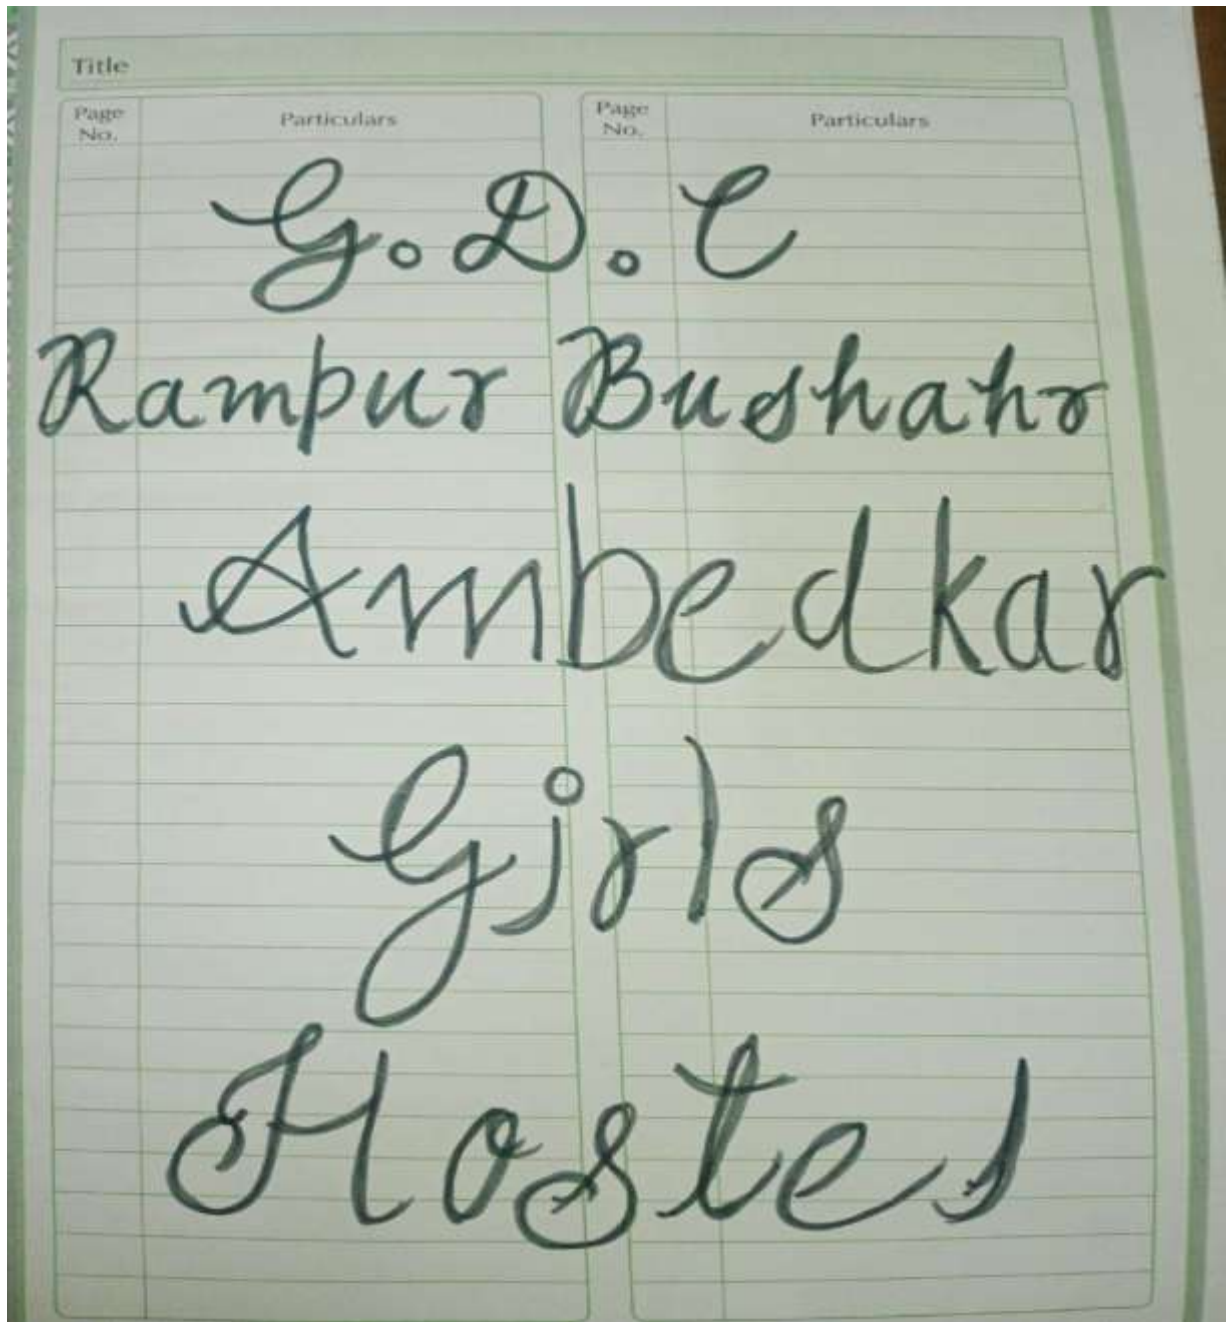 Title
Page No. Particulars Page No. Particulars
G.D.C
Rampur Bushahr
Ambedkar
Girls
Hostel